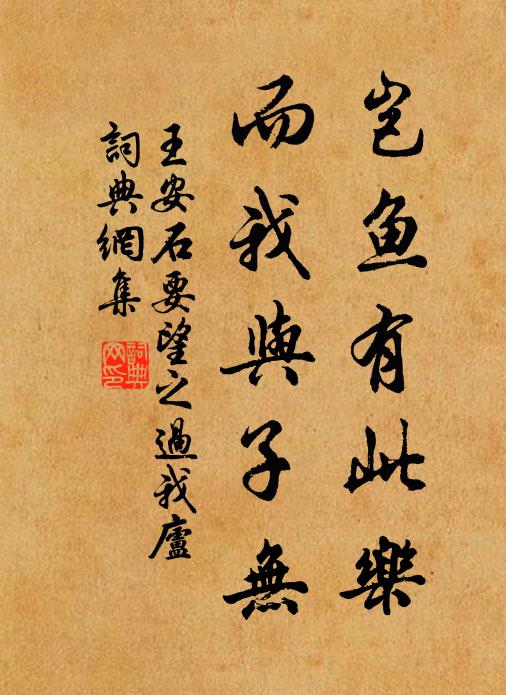 岂鱼有此樂
而我與子無
王安石要望之過我廬
詞典網集
詞典網印